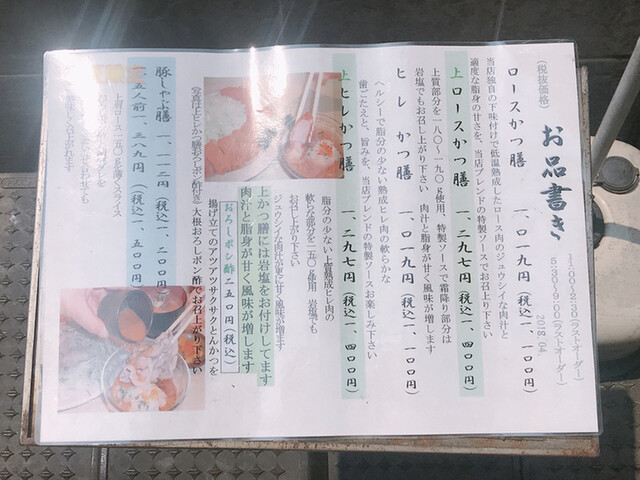 お品書き
2019.04
11:00~2:30(ラストオーダー)
5:30~9:00(ラストオーダー)
(税抜価格)
ロースかつ膳 一、〇一九円(税込一、一〇〇円)
当店独自の下味付けで低温熟成したロース肉のジュウシイな肉汁と
適度な脂身の甘さを、当店ブレンドの特製ソースでお召上り下さい
上ロースかつ膳 一、二九七円(税込一、四〇〇円)
上質部分を一八〇～一九〇g使用、特製ソースで霜降り部分は
岩塩でもお召し上がり下さい 肉汁と脂身が甘く風味が増します
ヒレかつ膳 一、〇一九円(税込一、一〇〇円)
ヘルシーで脂分の少ない熟成ヒレ肉の軟らかな
歯ごたえと、旨みを、当店ブレンドの特製ソースお楽しみ下さい
上ヒレかつ膳 一、二九七円(税込一、四〇〇円)
脂分の少ない上質熟成ヒレ肉の
軟らかな部分を一五〇g使用 岩塩でも
お召し上がり下さい
ジュウシイな肉汁が更に甘く風味が増します
上かつ膳には岩塩をお付けしてます
肉汁と脂身が甘く風味が増します
おろしポン酢 二五〇円(税込)、
揚げ立てのアツアツサクサクとんかつを
大根おろしポン酢でお召上がり下さい
豚しゃぶ膳 一、一一二円(税込一、二〇〇円)
一、五人前 一、三八九円(税込一、五〇〇円)